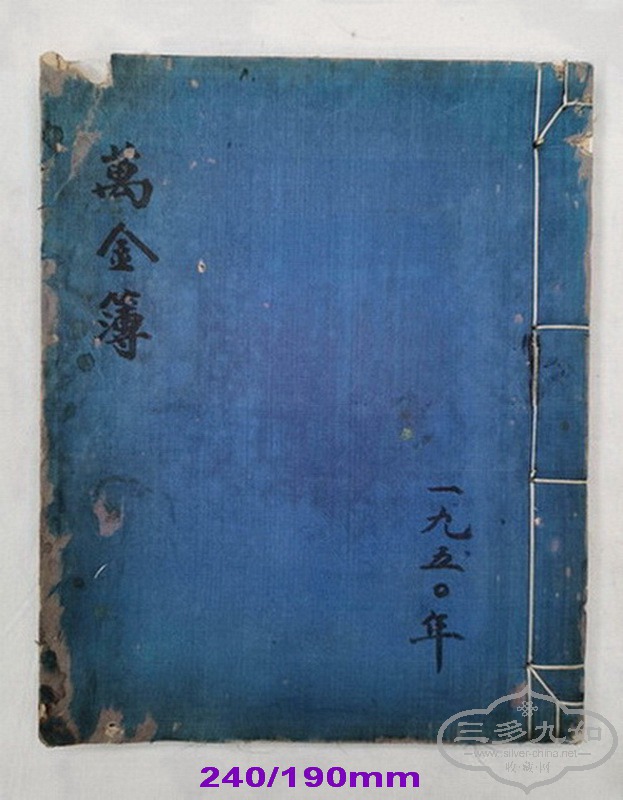 萬金簿
一九五〇年
三多九如
www.silver-china.net
收·藏·网
240/190mm